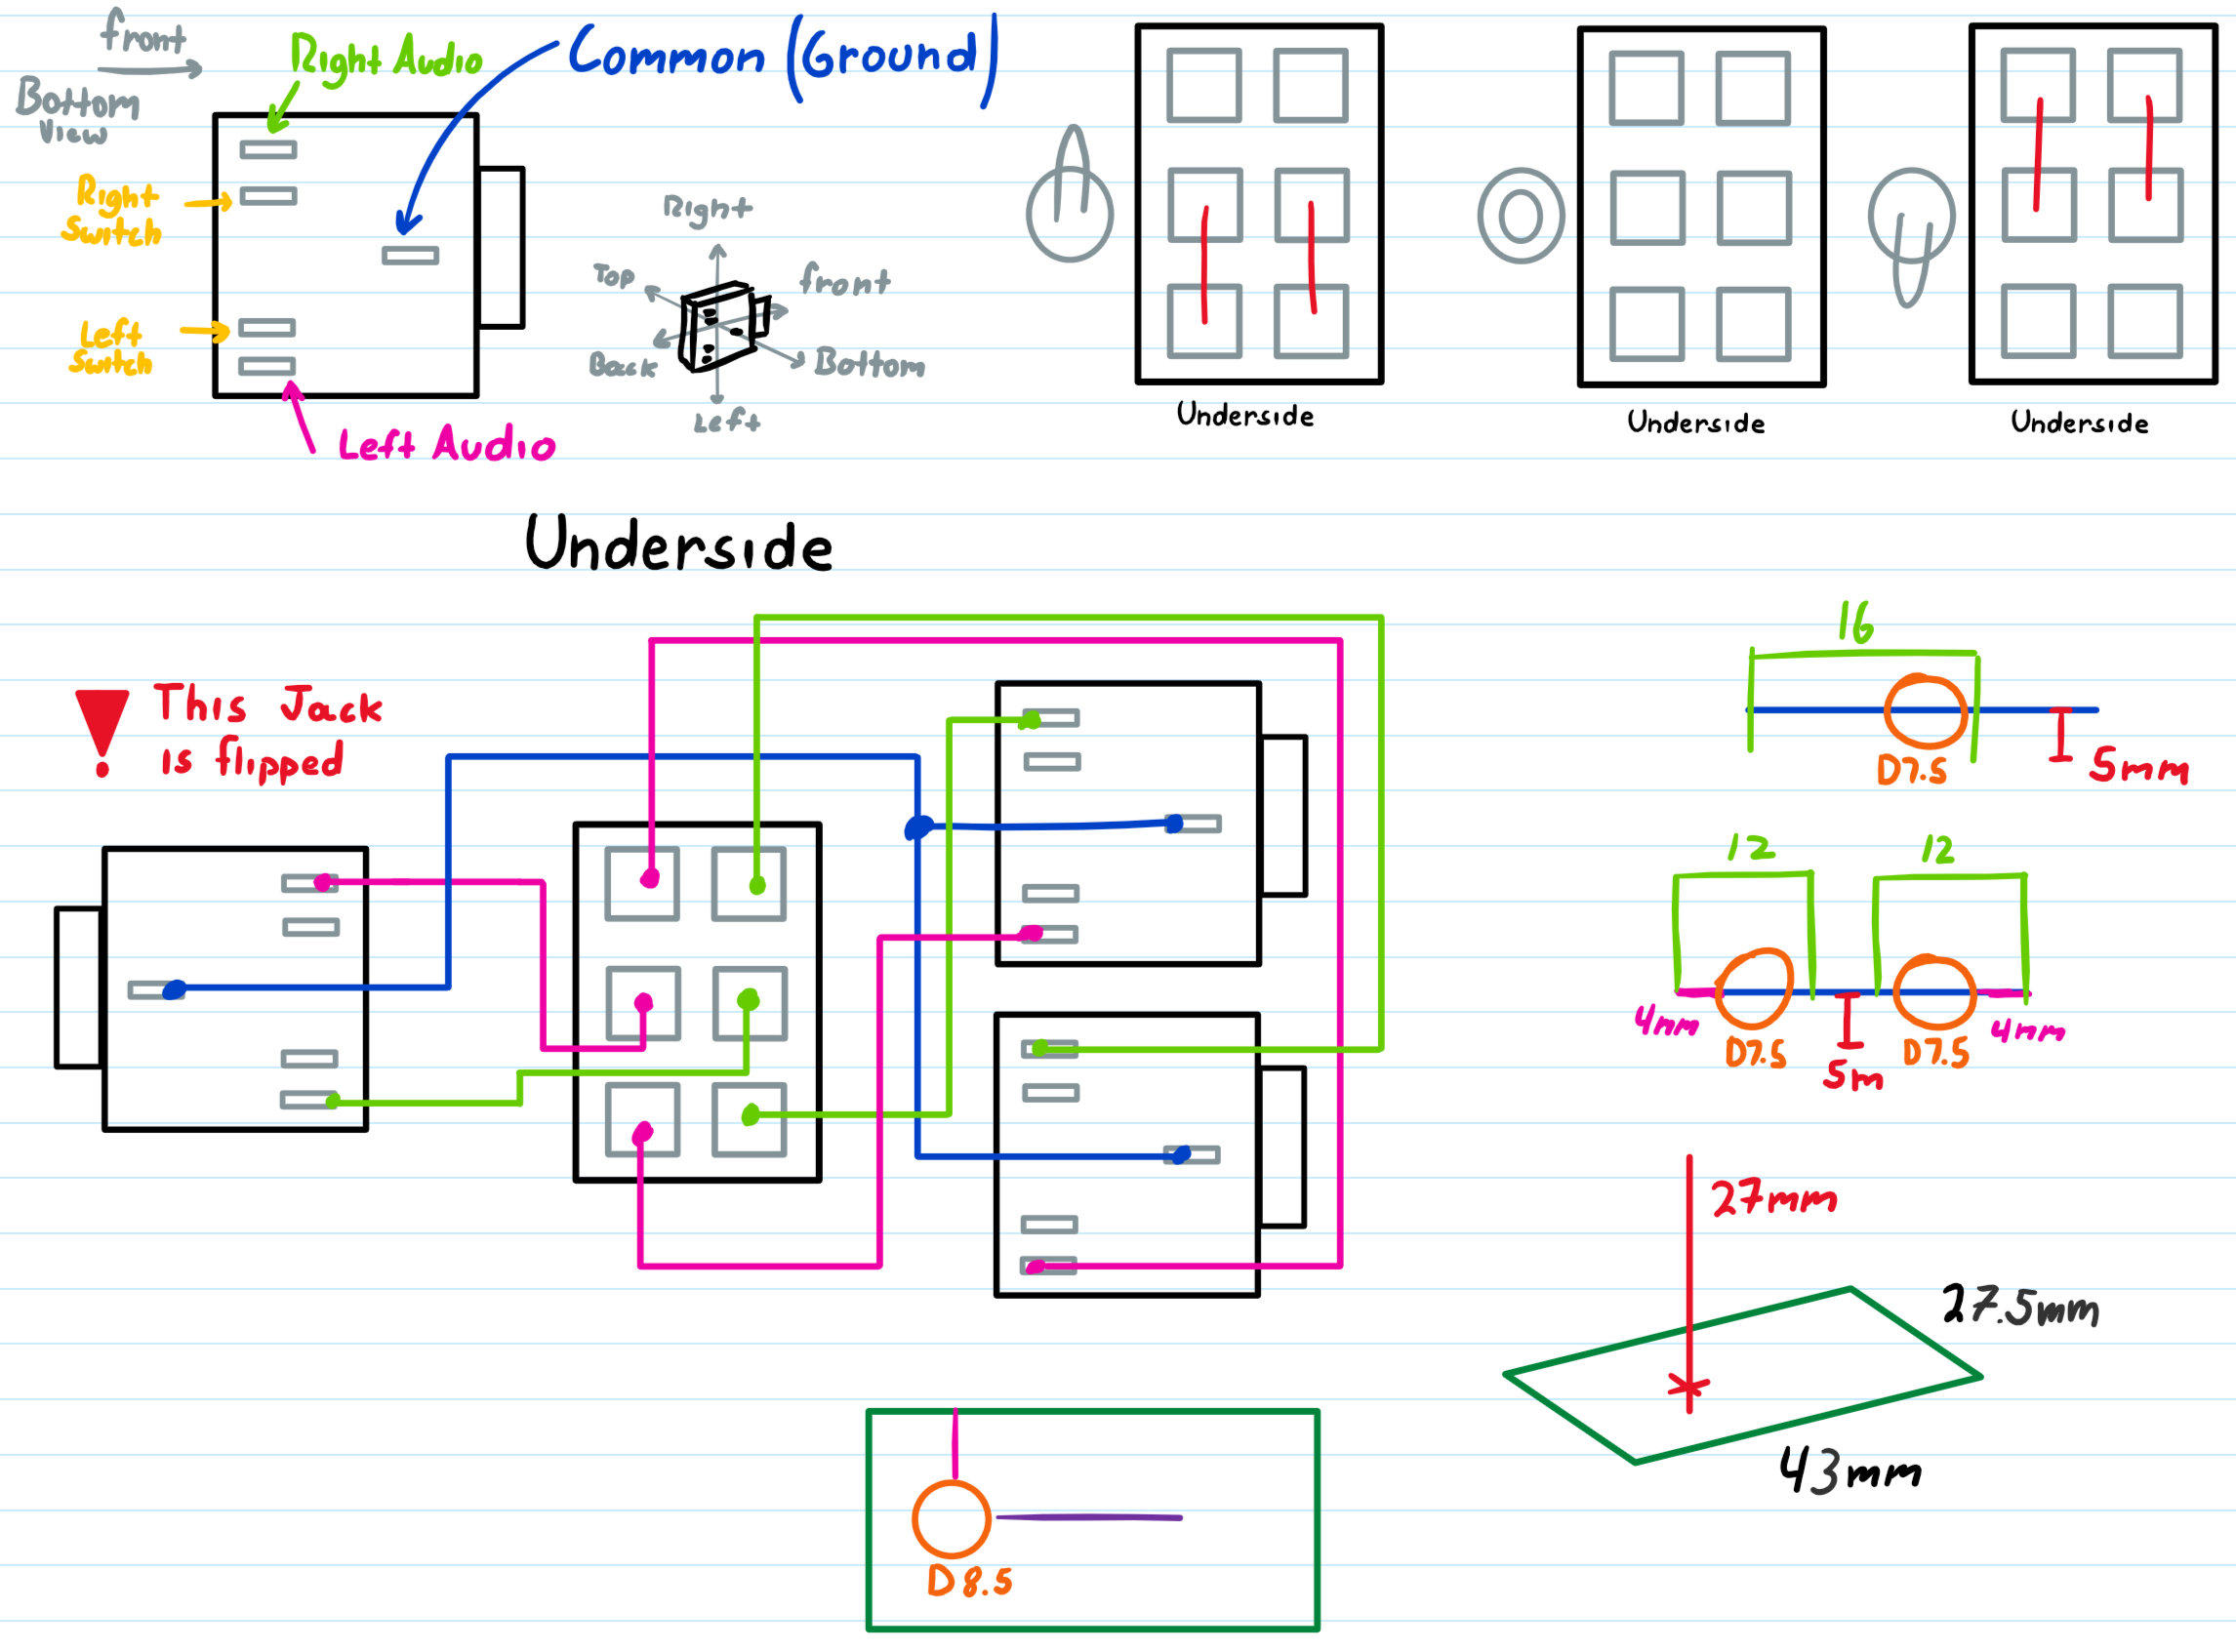 front
Bottom
View
Right Audio
Common (Ground)
Right
Switch
Left
Switch
Left Audio
Right
Top
front
Back
Bottom
Left
Underside
Underside
Underside
Underside
! This Jack
is flipped
16
D7.5
5mm
12
12
4mm
D7.5
5m
D7.5
4mm
27mm
27.5mm
43mm
D8.5